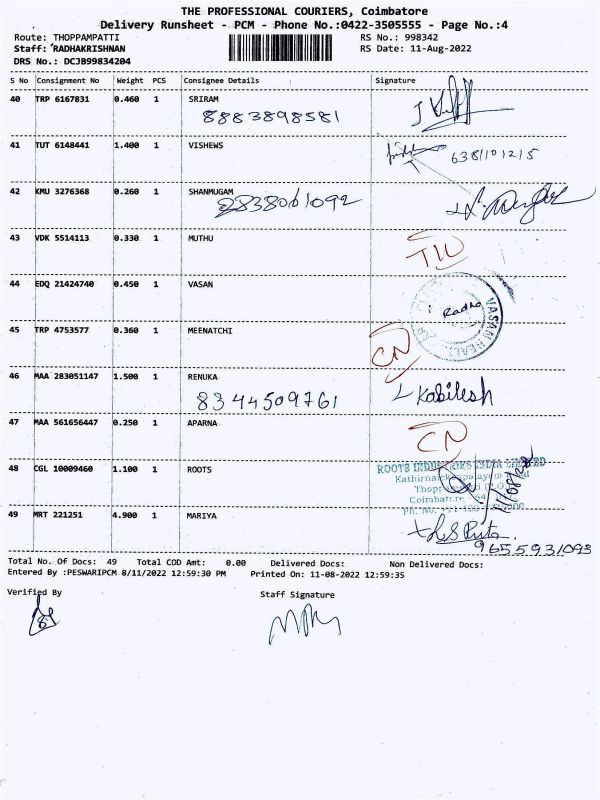 THE PROFESSIONAL COURIERS, Coimbatore
Delivery Runsheet - PCM - Phone No.:0422-3505555 - Page No.:4
Route: THOPPAMPATTI RS No.: 998342
Staff: RADHAKRISHNAN RS Date: 11-Aug-2022
DRS No.: DCJB99834204
S No Consignment No Weight PCS Consignee Details Signature
40 TRP 6167831 0.460 1 SRIRAM
8883898581
41 TUT 6148441 1.400 1 VISHEWS
6381101215
42 KMU 3276368 0.260 1 SHANMUGAM
9838061092
43 VDK 5514113 0.330 1 MUTHU
44 EDQ 21424740 0.450 1 VASAN
Radha
VASAN REALT
45 TRP 4753577 0.360 1 MEENATCHI
CN
46 MAA 283051147 1.500 1 RENUKA
8344509761 Kabilesh
47 MAA 561656447 0.250 1 APARNA
CN
48 CGL 10009460 1.100 1 ROOTS
ROOTS INDUSTRIES LIMITED
Coimbatore
11/08/22
49 MRT 221251 4.900 1 MARIYA
9655931093
Total No. Of Docs: 49 Total COD Amt: 0.00 Delivered Docs: Non Delivered Docs:
Entered By :PESWARIPCM 8/11/2022 12:59:30 PM Printed On: 11-08-2022 12:59:35
Verified By Staff Signature